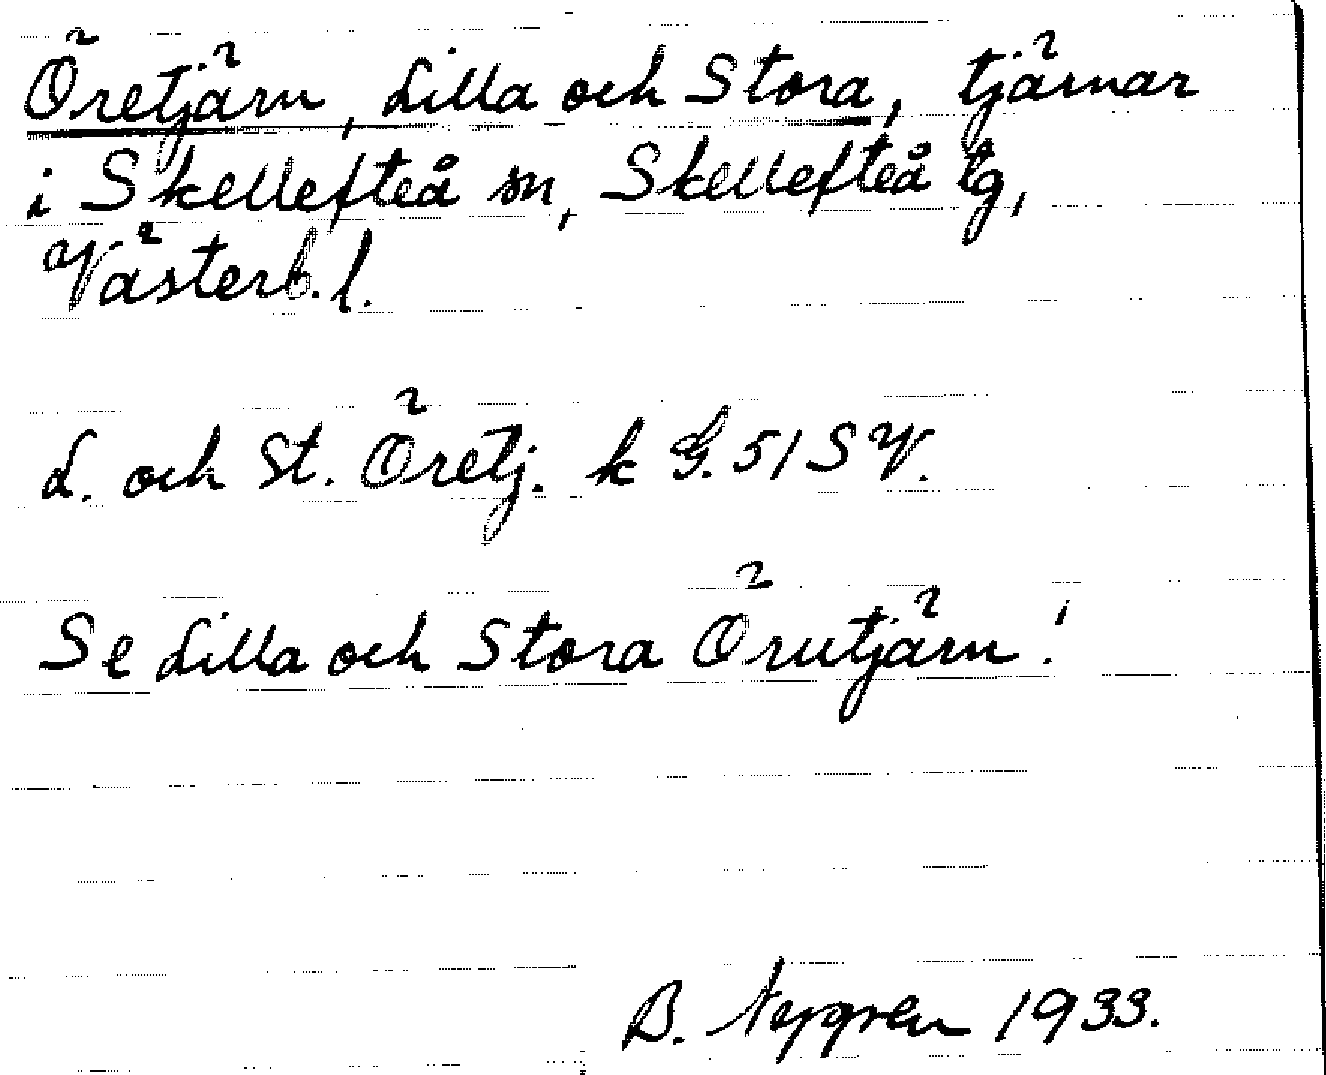 Öretjärn, Lilla och Stora, tjärnar
i Skellefteå sn, Skellefteå tg,
Västerb. l.
L. och St. Öretj. k G. 51 SV.
Se Lilla och Stora Örutjärn!
B. Nygren 1933.